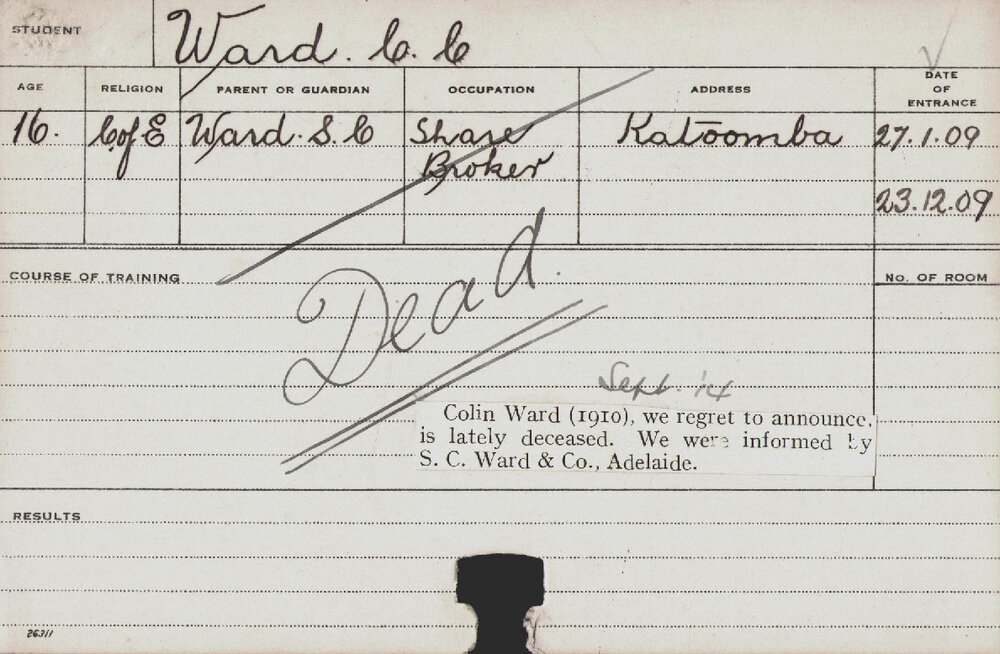 STUDENT
Ward. C. C
AGE
RELIGION
PARENT OR GUARDIAN
OCCUPATION
ADDRESS
DATE
OF
ENTRANCE
16. C of E Ward. S. C Share Katoomba 27.1.09
Broker
23.12.09
COURSE OF TRAINING
No. OF ROOM
Dead.
Sept. '14
Colin Ward (1910), we regret to announce,
is lately deceased. We were informed by
S. C. Ward & Co., Adelaide.
RESULTS
26311